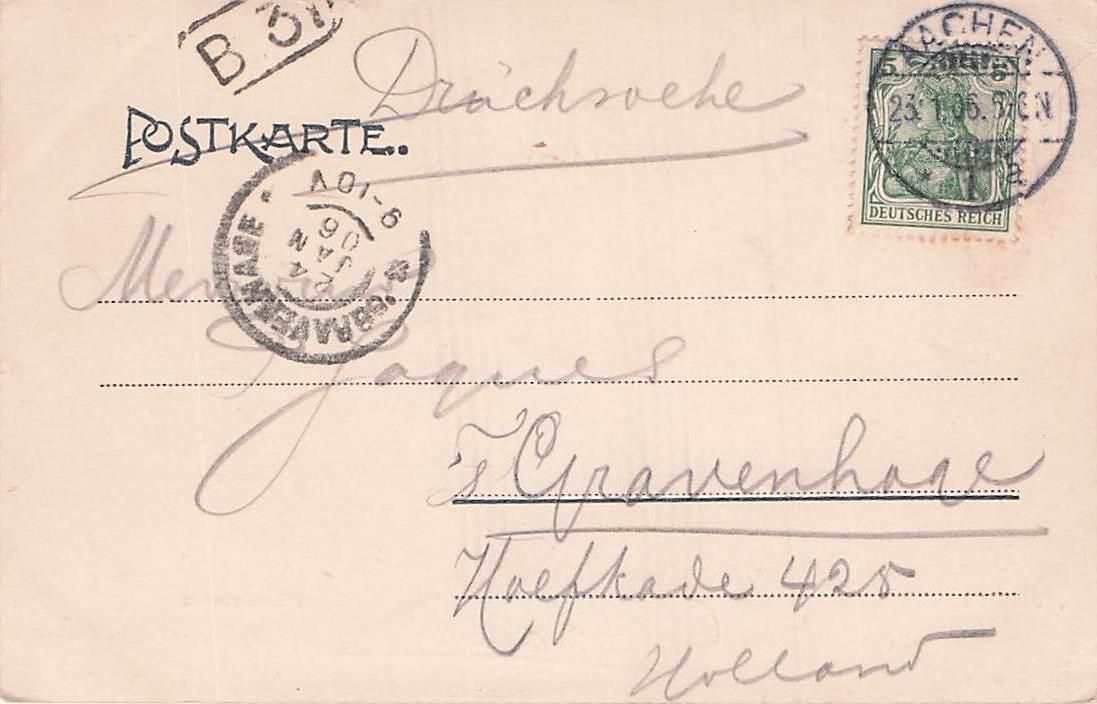 B 31
Drucksache
POSTKARTE.
AACHEN
23.1.06.
1
a.
5 5
DEUTSCHES REICH
'SGRAVENHAGE
24
JAN
06
9-10V
Jaques
's Gravenhage
Hoefkade 425
Holland